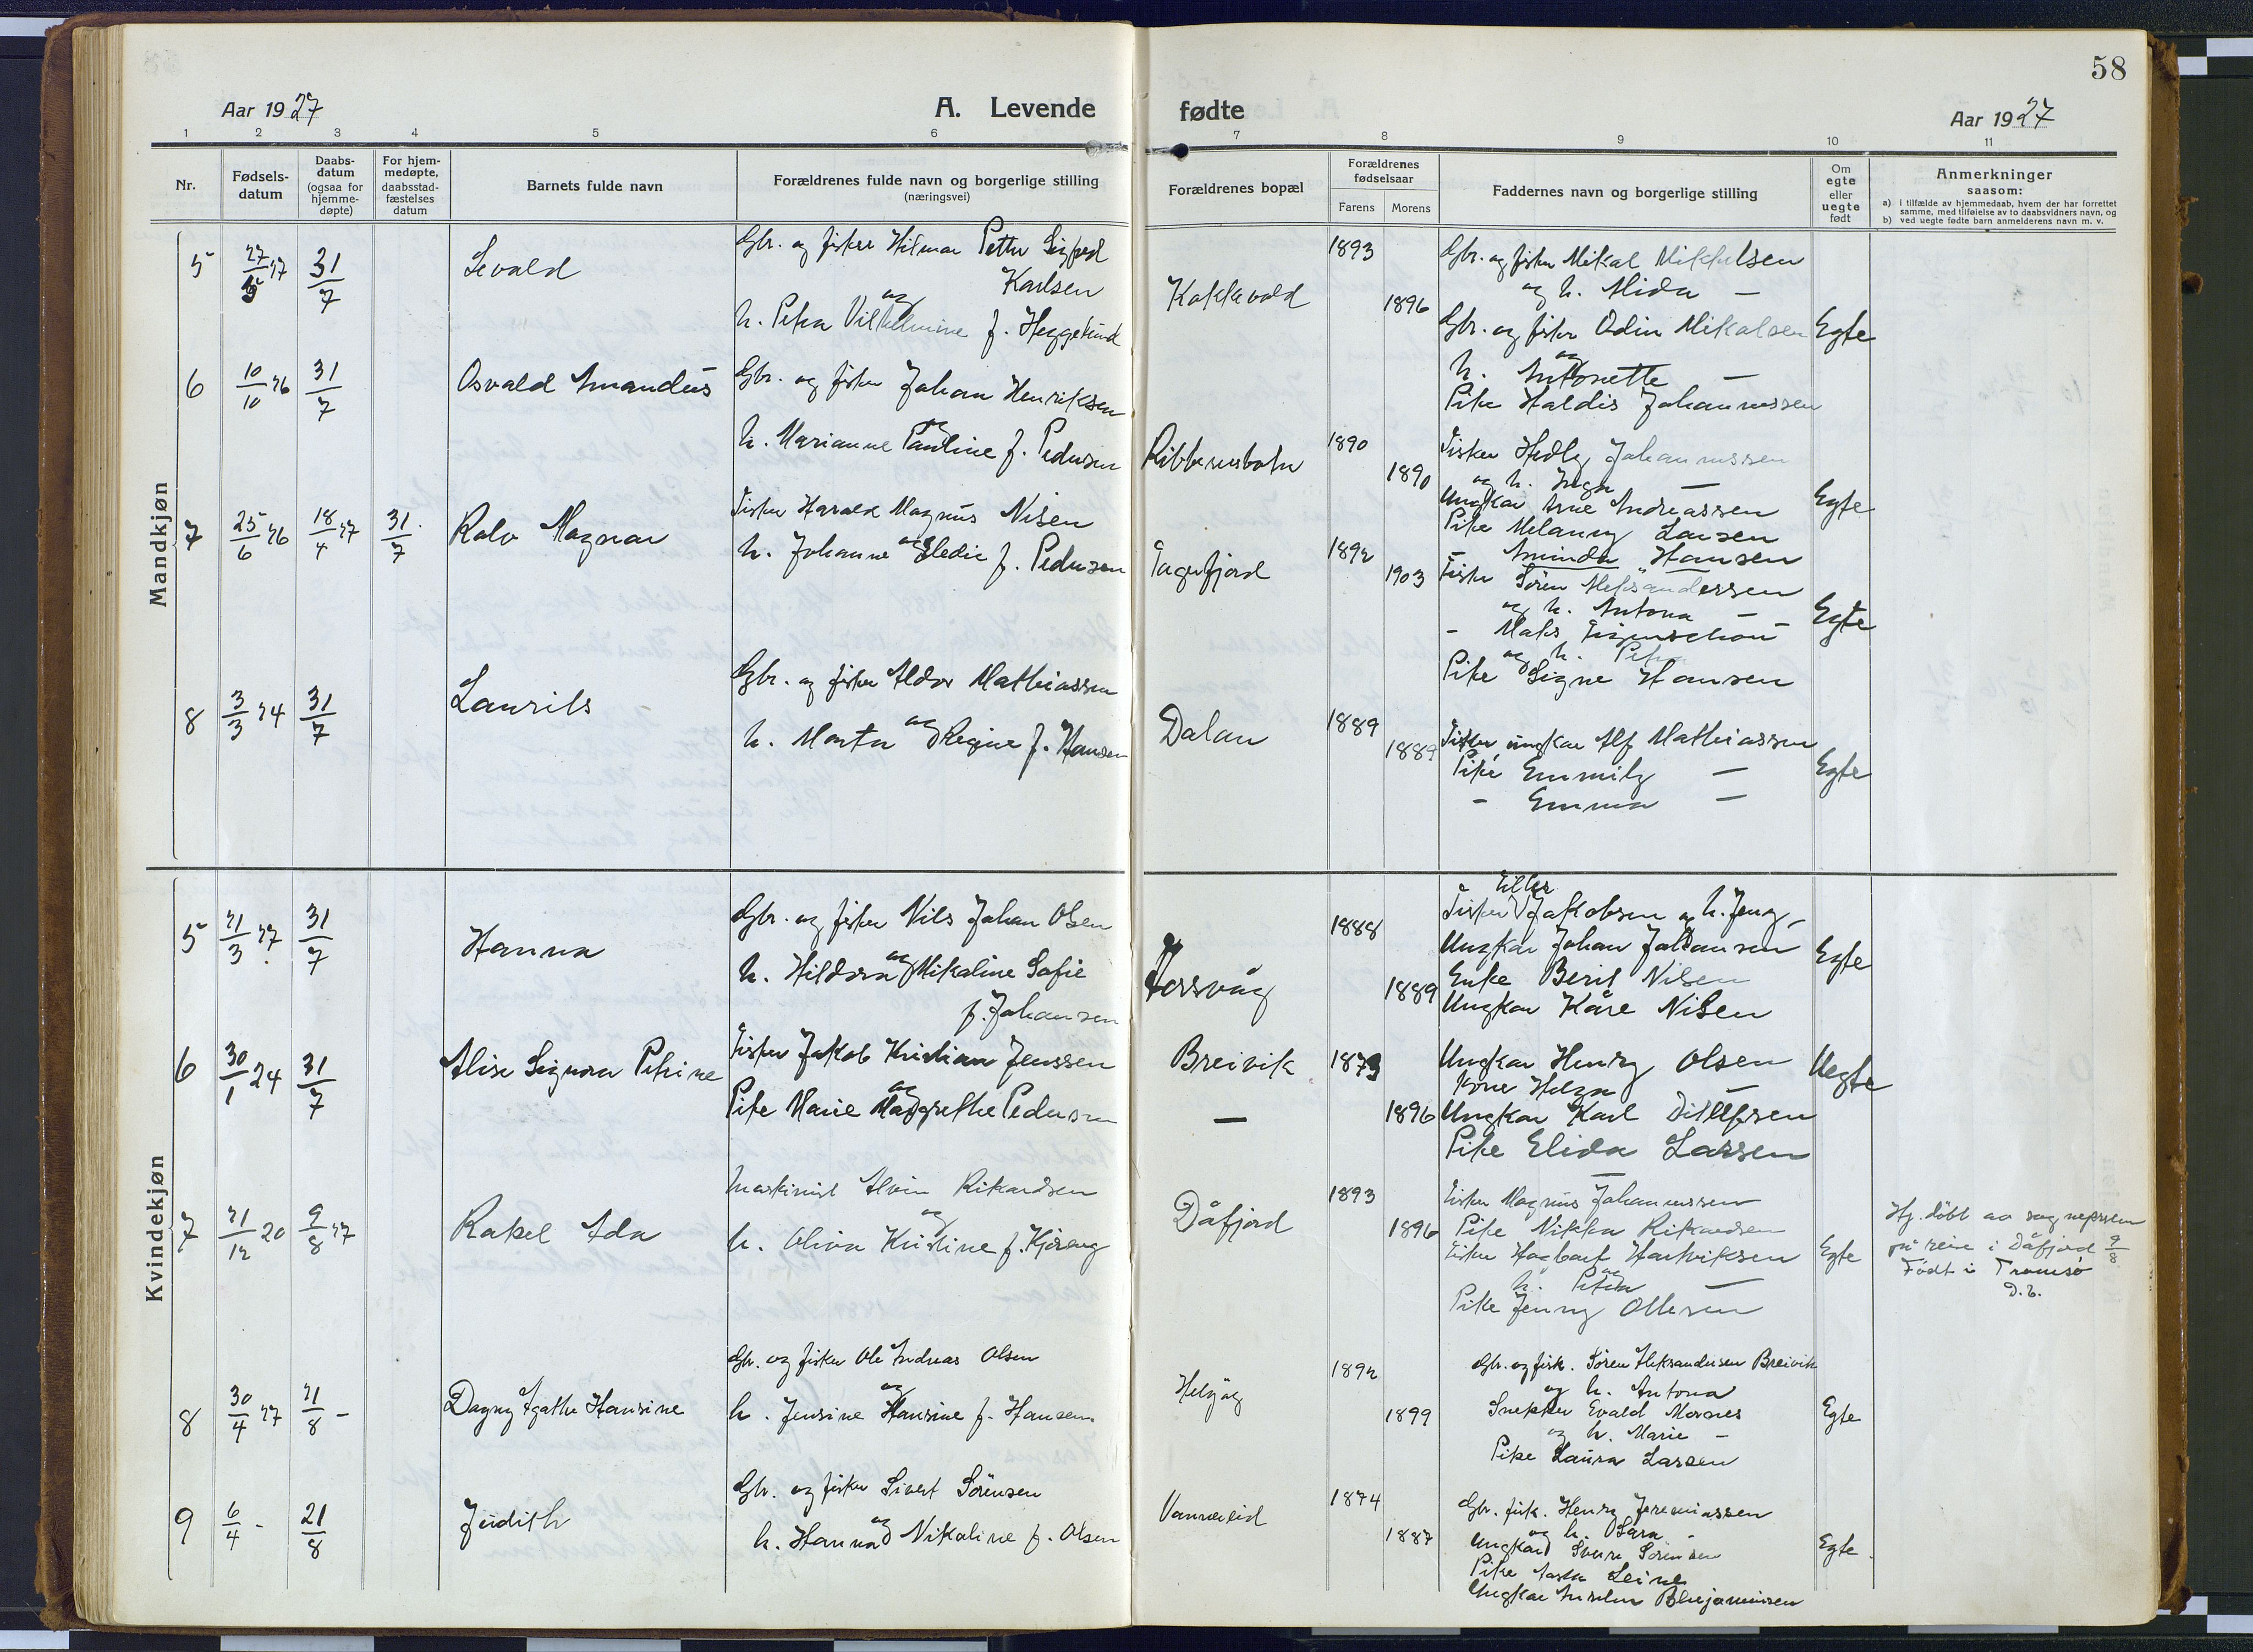 58
Aar 1927
A. Levende
fødte
Aar 1927
1 2 3 4 5 6 7 8 9 10 11
Nr.
Fødsels-
datum
Daabs-
datum
(ogsaa for
hjemme-
døpte)
For hjem-
medøpte,
daabsstad-
fæstelses
datum
Barnets fulde navn
Forældrenes fulde navn og borgerlige stilling
(næringsvei)
Forældrenes bopæl
Forældrenes
fødselsaar
Farens Morens
Faddernes navn og borgerlige stilling
Om
egte
eller
uegte
født
Anmerkninger
saasom:
a) i tilfælde av hjemmedaab, hvem der har forrettet
samme, med tilføielse av to daabsvidners navn, og
b) ved uegte fødte barn anmelderens navn m. v.
Mandkjøn
5 27/5 27 31/7
Sevald
Gbr. og fisker Hilmar Petter Sigfred
Karlsen
og
h. Petra Vilhelmine f. Heggelund
Kokkvold
1893
1896
Gbr. og fisker Mikal Mikkelsen
og h. Alida —
Gbr. og fisker Odin Mikalsen
og
h. Antonette —
Pike Haldis Johannessen
Egte
6 10/10 26 31/7
Osvald Amandus
Gbr. og fisker Johan Henriksen
og
h. Marianne Pauline f. Pedersen
Ribbenesbotn
1890
1890
Fisker Hedly Johannessen
og h. Inga —
Ungkar Arne Andreassen
Pike Melanny Larsen
— Aminda Hansen
Egte
7 25/6 26 18/4 27 31/7
Ralv Magnar
Fisker Harald Magnus Nilsen
og
h. Johanne Eledie f. Pedersen
1892
1903
Fisker Søren Aleksandersen
og h. Antona —
og h. Petra
Pike Signe Hansen
Egte
8 3/3 24 31/7
Laurits
Gbr. og fisker Aldor Mathiassen
og
h. Marta Regine f. Hansen
Dalan
1889
1889
Fisker, ungkar Alf Mathiassen
Pike Emmily —
- Emma —
Egte
Kvindekjøn
5 21/3 27. 31/7
Hanna
Gbr. og fisker Nils Johan Olsen
og
h. Hildora Mikaline Sofie
f. Johansen
1888
1889
Fisker Jakobsen og h. Jenny -
Ungkar Johan Johansen
Enke Berit Nilsen
Ungkar Kåre Nilsen
Egte
6 30/1 24 31/7
Alise Signora Petrine
Fisker Jakob Kristian Jenssen
og
Pike Marie Margrethe Pedersen
Breivik
—
1873
1896
Ungkar Henry Olsen
Kone Helga —
Ungkar Karl Ditlefsen
Pike Elida Larsen
Uegte
7 21/12 20 9/8 27
Rakel Ada
Maskinist Alvin Rikardsen
og
h. Olivia Kristine f. Kjøreng
Dåfjord
1893
1896
Fisker Magnus Johannessen
Pike Nikka Rikardsen
Fisker Hagbart Hartviksen
og
h. Petra —
Pike Jenny Ottesen
Egte
Hj. døbt av sognepresten
på reise i Dåfjord 9/8
Født i Tromsø
D.b.
8 30/4 27 21/8 -
Dagny Agathe Hansine
Gbr. og fisker Ole Andreas Olsen
og
h. Jensine Hansine f. Hansen.
1892
1899
Gbr. og fisk. Søren Aleksandersen Breivik
og h. Antona
Snekker Evald Mornes
og h. Marie -
Pike Laura Larsen
Egte
9 6/4 - 21/8
Judith
Gbr. og fisker Sivert Sørensen
og
h. Hanna Nikoline f. Olsen
Vannareid
1874
1887
Gbr. fisk. Henry Jeremiassen
og h. Sara -
Ungkar Sverre Sørensen
Ungkar Anselm Benjaminsen
Egte